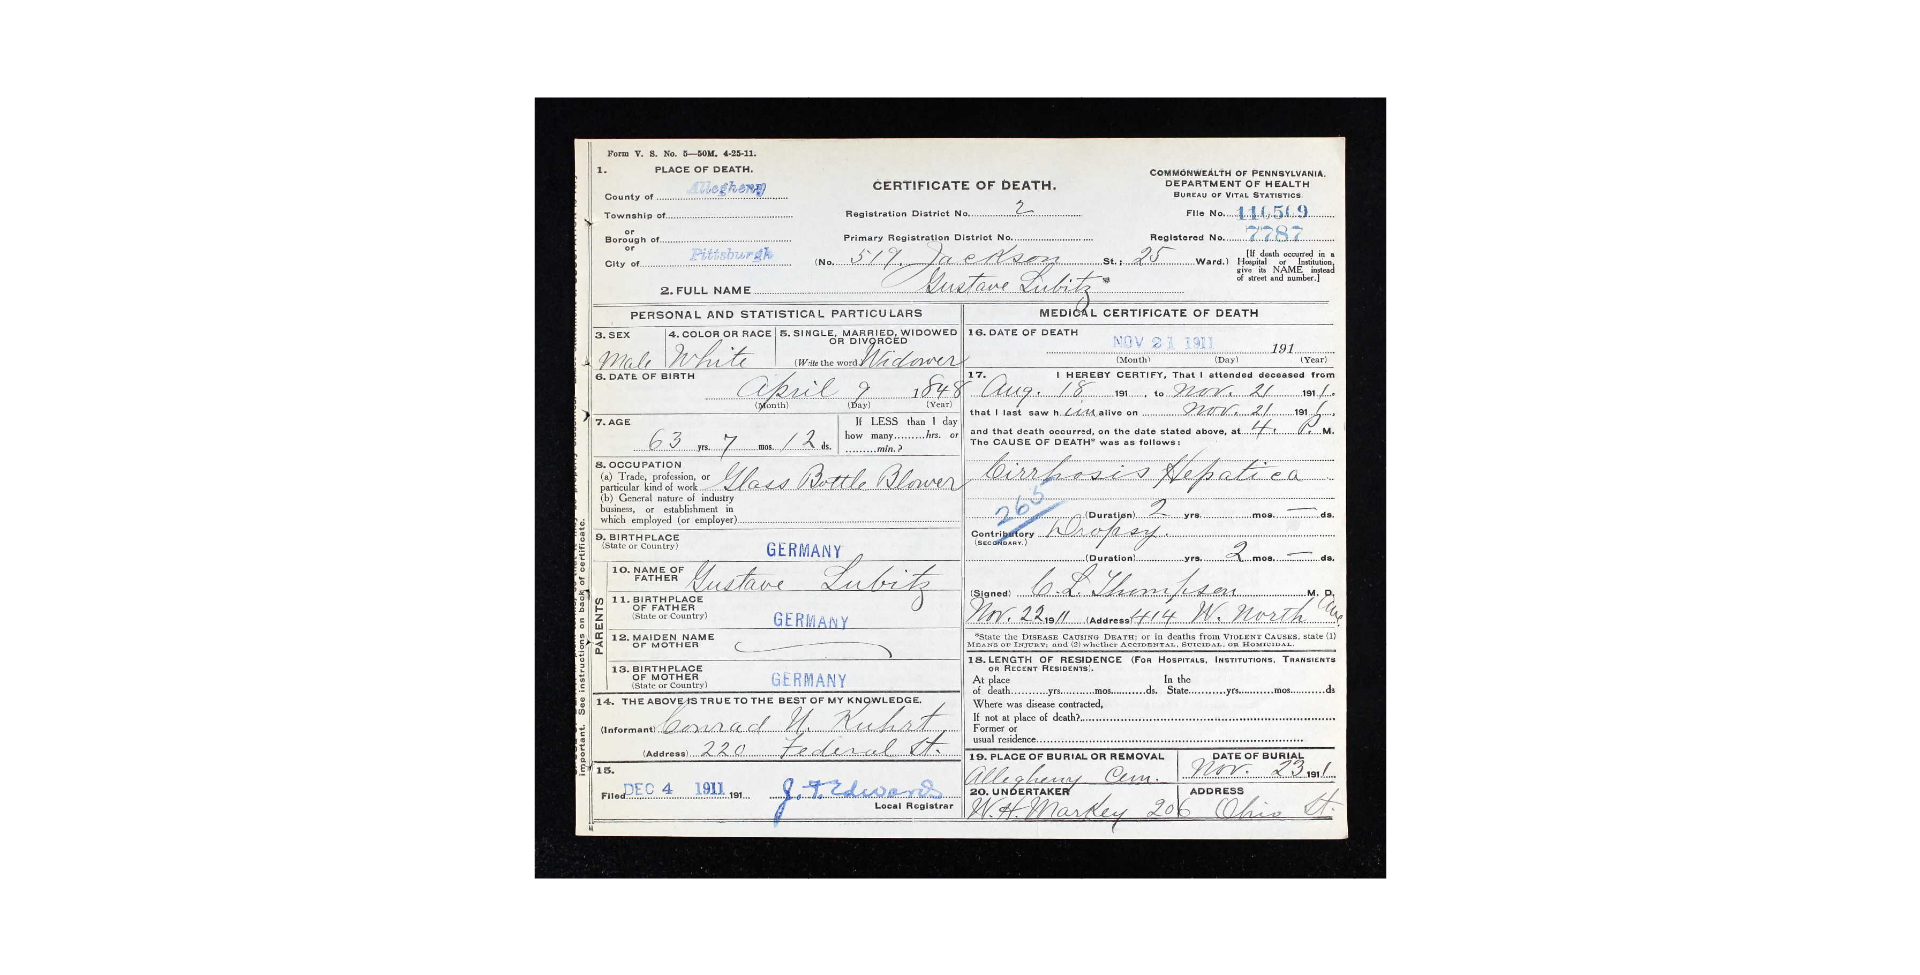 Form V. S. No. 5—50M. 4-25-11.
1. PLACE OF DEATH.
County of Allegheny
Township of
or
Borough of
or
City of Pittsburgh
CERTIFICATE OF DEATH.
Registration District No. 2
Primary Registration District No.
(No. 519 Jackson St.; 25 Ward.)
COMMONWEALTH OF PENNSYLVANIA.
DEPARTMENT OF HEALTH
BUREAU OF VITAL STATISTICS
File No.
Registered No. 7787
[If death occurred in a
Hospital or Institution,
give its NAME instead
of street and number.]
2. FULL NAME Gustave Lubitz
PERSONAL AND STATISTICAL PARTICULARS
3. SEX
Male
4. COLOR OR RACE
White
5. SINGLE, MARRIED, WIDOWED
OR DIVORCED
(Write the word) Widower
6. DATE OF BIRTH
April 9 1848
(Month) (Day) (Year)
7. AGE
63 yrs. 7 mos. 12 ds.
If LESS than 1 day
how many hrs. or
min.?
8. OCCUPATION
(a) Trade, profession, or
particular kind of work Glass Bottle Blower
(b) General nature of industry
business, or establishment in
which employed (or employer)
9. BIRTHPLACE
(State or Country) GERMANY
PARENTS
10. NAME OF
FATHER Gustave Lubitz
11. BIRTHPLACE
OF FATHER
(State or Country) GERMANY
12. MAIDEN NAME
OF MOTHER
13. BIRTHPLACE
OF MOTHER
(State or Country) GERMANY
14. THE ABOVE IS TRUE TO THE BEST OF MY KNOWLEDGE.
(Informant) Conrad N. Kuhrt
(Address) 220 Federal St.
15.
Filed DEC 4 1911 191
J. F. Edwards
Local Registrar
MEDICAL CERTIFICATE OF DEATH
16. DATE OF DEATH
NOV 21 1911 191
(Month) (Day) (Year)
17. I HEREBY CERTIFY, That I attended deceased from
Aug. 18 191 , to Nov. 21 1911.
that I last saw him alive on Nov. 21 1911.
and that death occurred, on the date stated above, at 4. P. M.
The CAUSE OF DEATH* was as follows:
Cirrhosis Hepatica
265
(Duration) 2 yrs. mos. — ds.
Contributory Dropsy.
(SECONDARY.)
(Duration) yrs. 2 mos. — ds.
(Signed) C. L. Thompson M. D.
Nov. 22 1911 (Address) 414 W. North Ave
*State the DISEASE CAUSING DEATH; or in deaths from VIOLENT CAUSES, state (1)
MEANS OF INJURY; and (2) whether ACCIDENTAL, SUICIDAL, OR HOMICIDAL.
18. LENGTH OF RESIDENCE (FOR HOSPITALS, INSTITUTIONS, TRANSIENTS
OR RECENT RESIDENTS).
At place In the
of death yrs. mos. ds. State yrs. mos. ds
Where was disease contracted,
If not at place of death?
Former or
usual residence
19. PLACE OF BURIAL OR REMOVAL
Allegheny Cem.
DATE OF BURIAL
Nov. 23 1911
20. UNDERTAKER
W. H. Markey
ADDRESS
206 Ohio St.
important. See instructions on back of certificate.